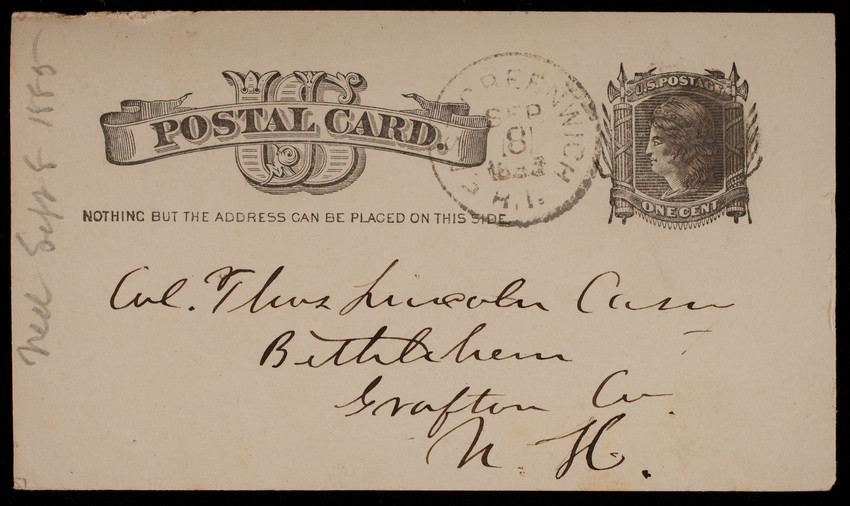 US
POSTAL CARD.
NOTHING BUT THE ADDRESS CAN BE PLACED ON THIS SIDE.
EAST GREENWICH
SEP
8
R.I.
U.S. POSTAGE
ONE CENT
Col. Thos Lincoln Casey
Bethlehem
Grafton Co.
N. H.
Ned Sept 8 1885